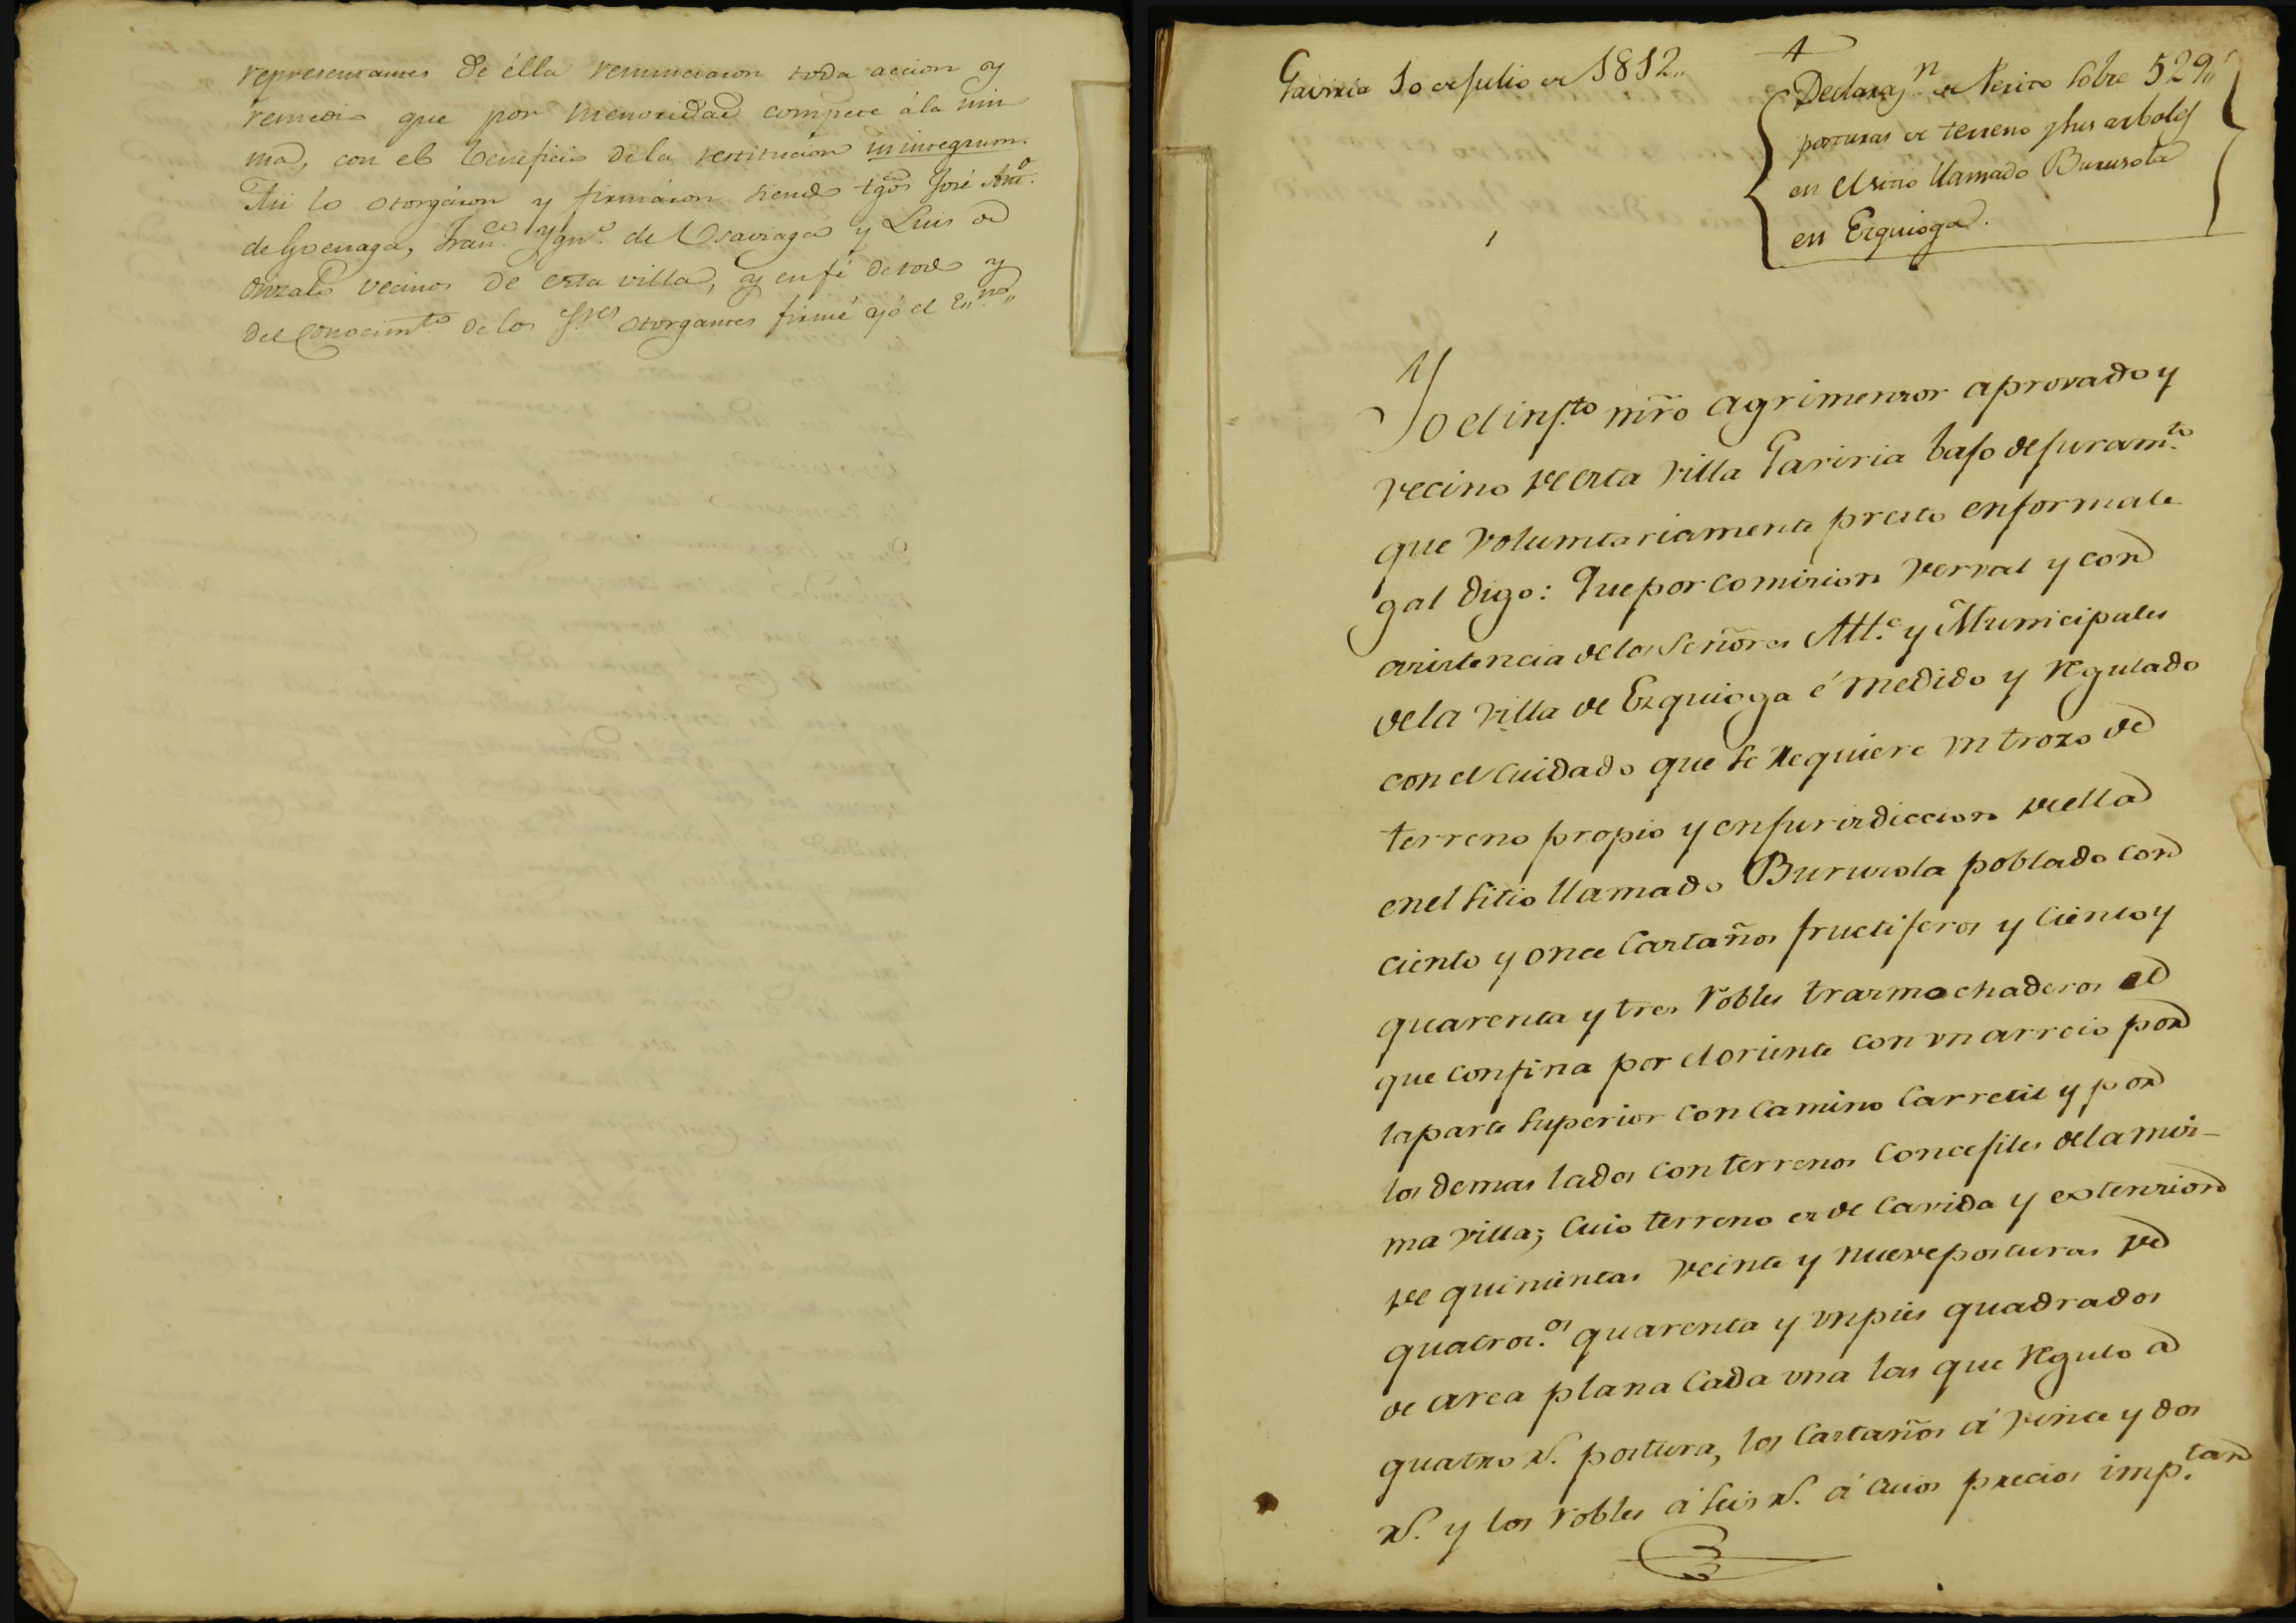 representantes de élla renunciaron toda accion y
remedio que por menoridad compete á la mis
ma, con el beneficio de la restitucion in integrum.
Asi lo otorgáron y firmáron siendo tgos José Anto.
de Goenaga, Franco. Ygno. de Usaviaga y Luis de
vecinos de esta villa, y en fé de todo y
del conocimto. de los Sres otorgantes firmé yó el Esno.
Gaviria 10 de Julio de 1812..
4
Declarazn de Perito sobre 529..
posturas de terreno y sus arboles
en el sitio llamado Burusola
en Ezquioga.
Yo el infto mro agrimensor aprovado y
vecino de esta villa Gaviria bajo de juramto.
que voluntariamente presto en forma le
gal digo: Que por comision verval y con
asistencia de los Señores Alle. y Municipales
de la villa de Ezquioga é medido y regulado
con el cuidado que se requiere vn trozo de
terreno propio y en jurisdiccion de ella
en el sitio llamado Burusola poblado con
ciento y once castaños fructiferos y ciento y
quarenta y tres robles trasmochaderos el
que confina por el oriente con vn arroio por
la parte superior con camino carretil y por
los demas lados con terrenos concejiles de la mis-
ma villa; cuio terreno es de cavida y extension
de quinientas veinte y nueve posturas de
quatroc.os quarenta y vn pies quadrados
de area plana cada vna las que regulo a
quatro rs. postura, los castaños á veinte y dos
rs. y los robles á seis rs. á cuios precios imp.tan